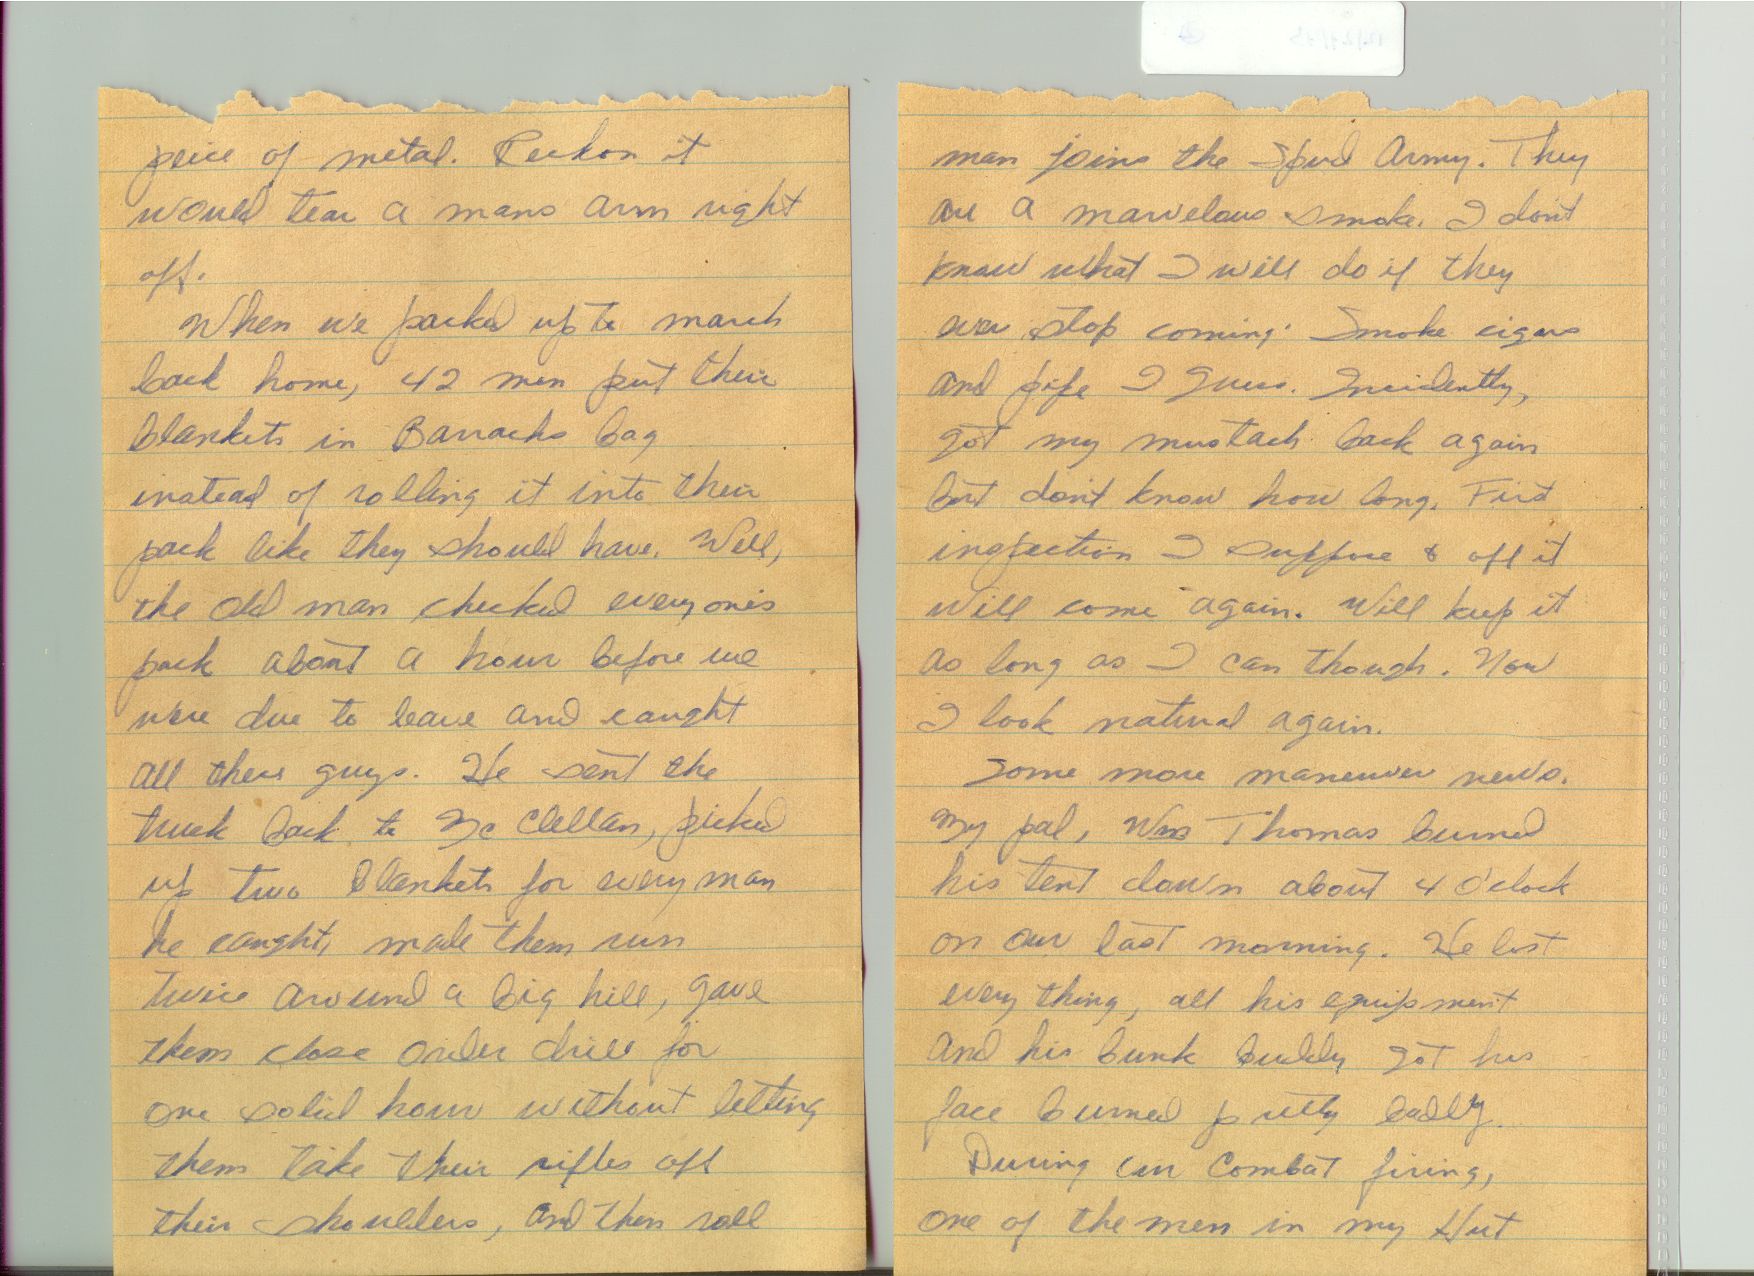 peice of metal. Reckon it
would tear a mans arm right
off.
When we packed up to march
back home, 42 men put their
blankets in Barracks bag
instead of rolling it into their
pack like they should have. Well,
the old man checked everyones
pack about a hour before we
were due to leave and caught
all these guys. He sent the
truck back to Mc Clellan, picked
up two blankets for every man
he caught, made them run
twice around a big hill, gave
them close order drill for
one solid hour without letting
them take their rifles off
their shoulders, and then roll
man joins the Spud Army. They
are a marvelous smoke. I don't
know what I will do if they
ever stop coming. Smoke cigars
and pipe I guess. Incidently,
got my mustach back again
but don't know how long. First
inspection I suppose & off it
will come again. Will keep it
as long as I can though. Now
I look natural again.
Some more maneuver news.
My pal, Wm Thomas burned
his tent down about 4 O'clock
on our last morning. He lost
every thing, all his equipment
and his bunk buddy got his
face burned pretty badly.
During our combat firing,
one of the men in my Hut